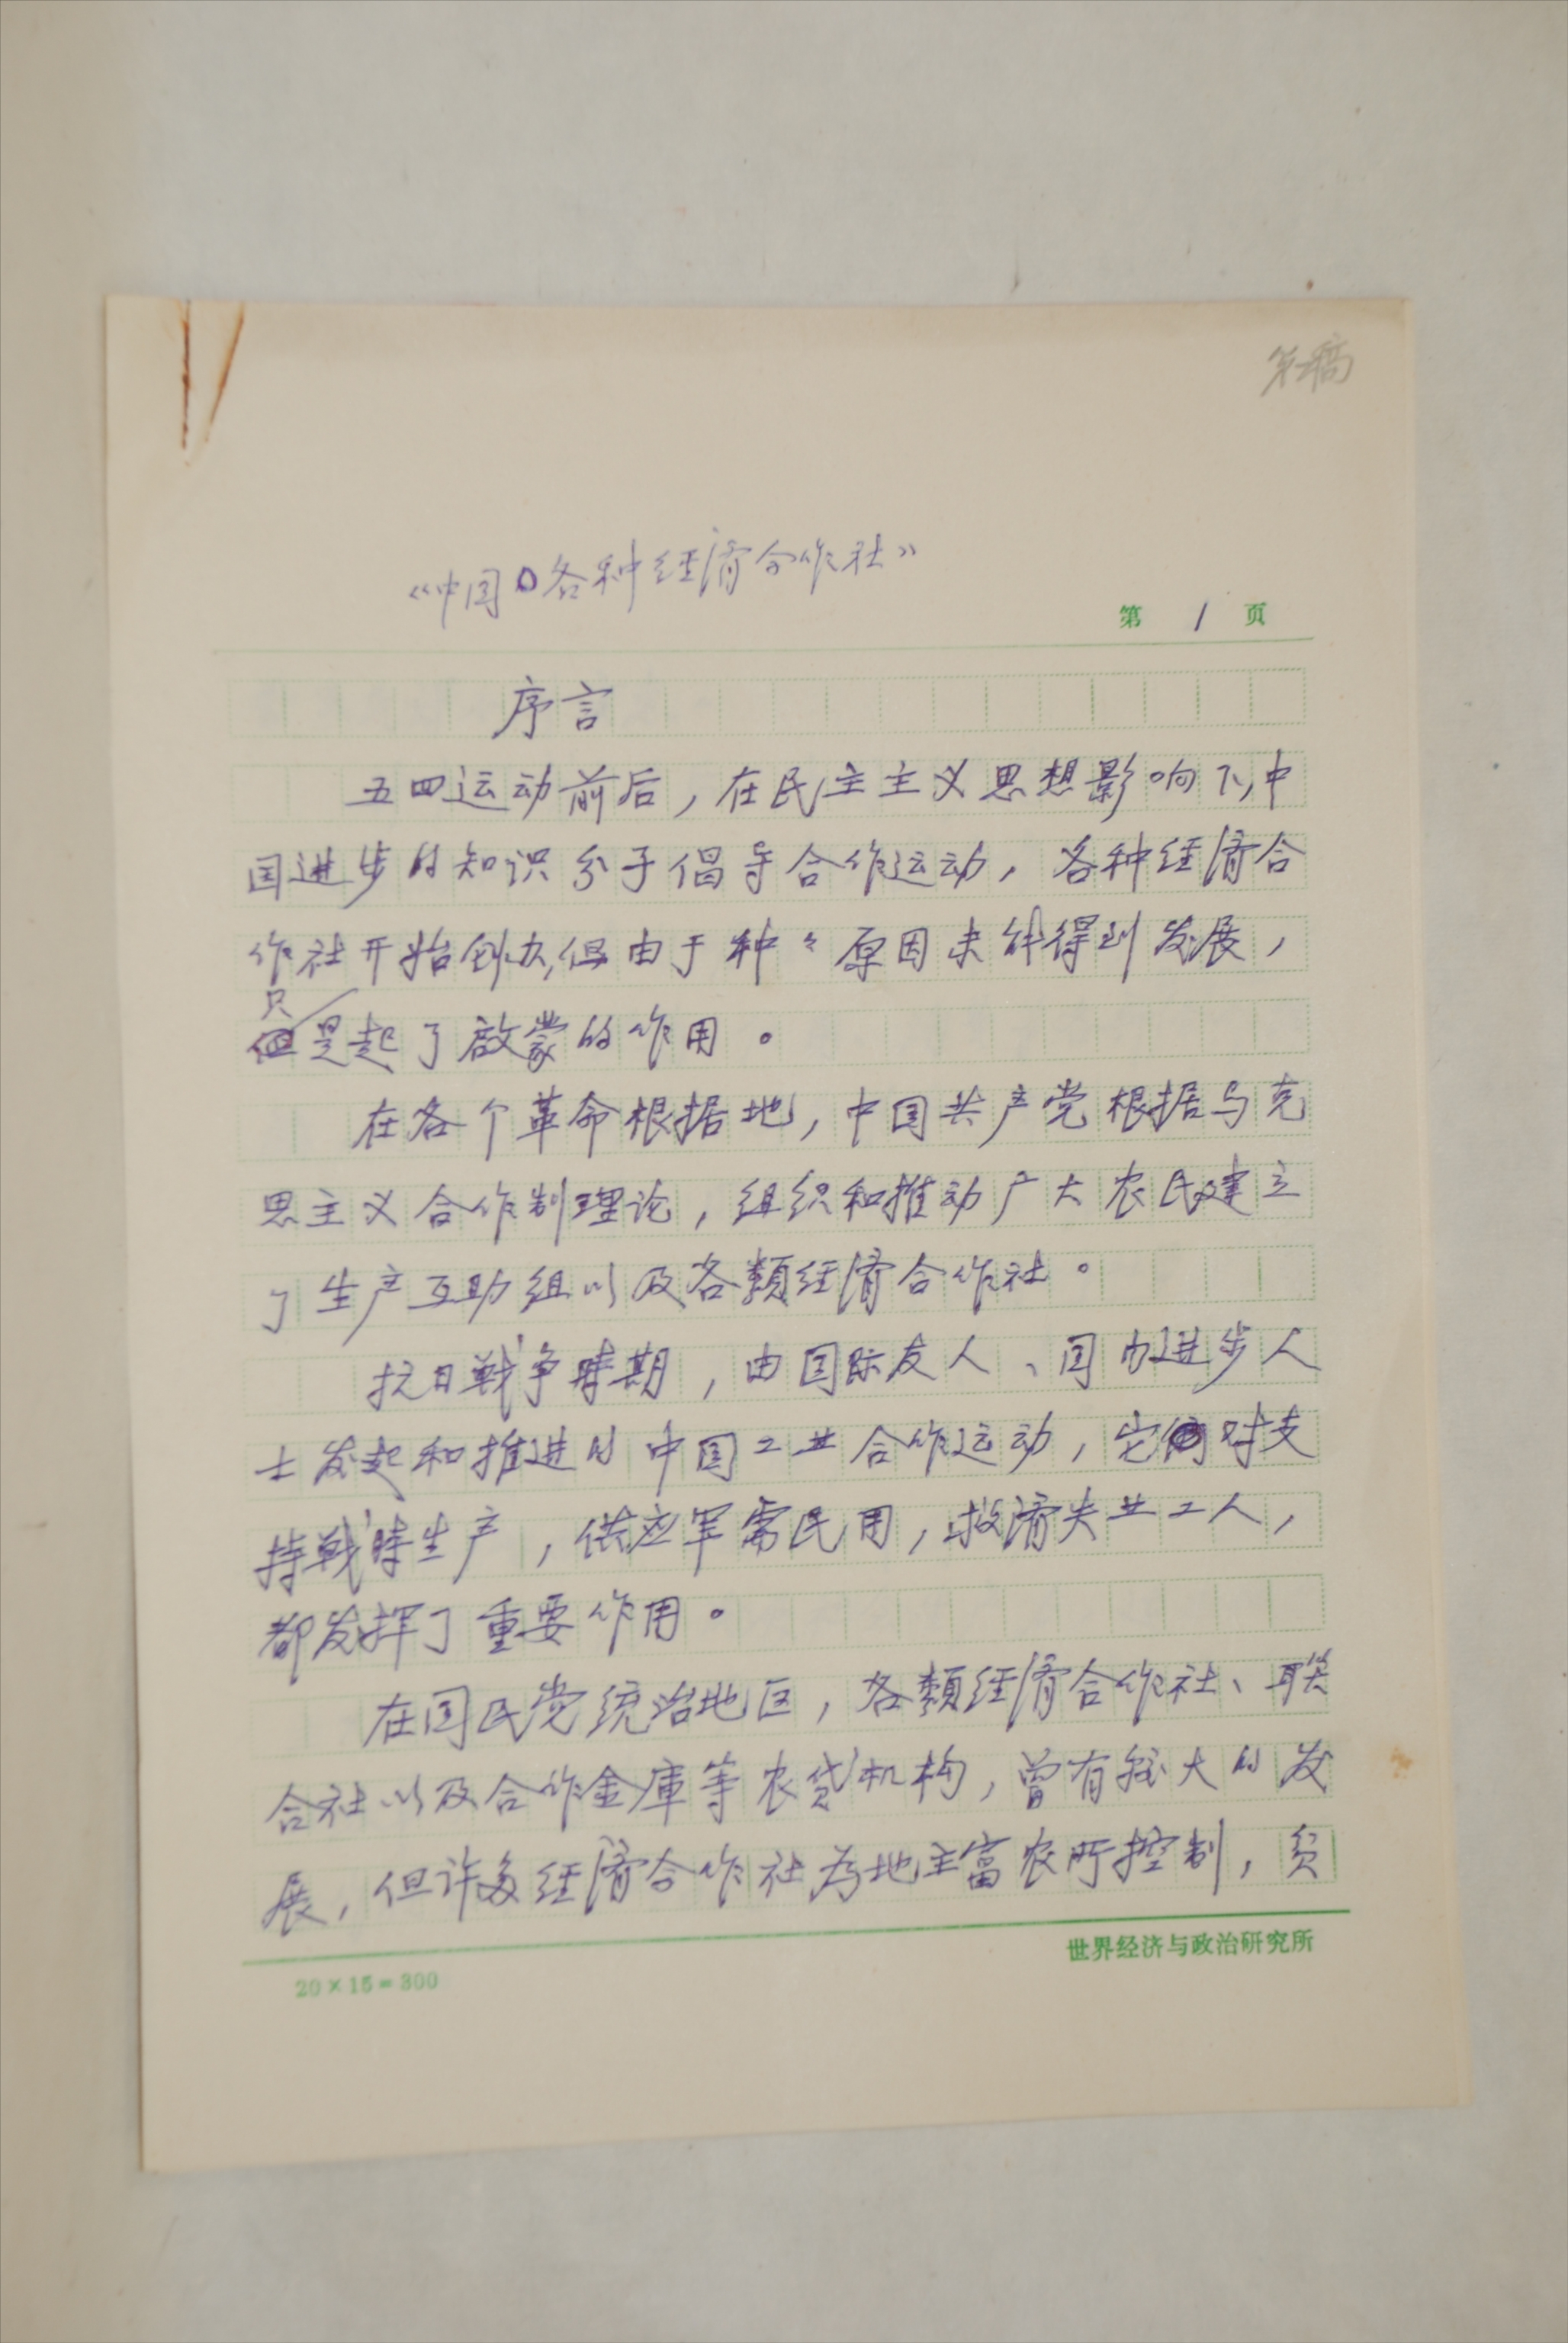 第二稿
《中国各种经济合作社》
第 1 页
序言
五四运动前后，在民主主义思想影响下，中
国进步的知识分子倡导合作运动，各种经济合
作社开始创办，但由于种々原因未能得到发展，
只
是起了启蒙的作用。
在各个革命根据地，中国共产党根据马克
思主义合作制理论，组织和推动广大农民建立
了生产互助组以及各類经济合作社。
抗日戦争時期，由国际友人、国内进步人
士发起和推进的中国工业合作运动，它对支
持戦時生产，供应军需民用，救济失业工人，
都发挥了重要作用。
在国民党统治地区，各類经济合作社、联
合社以及合作金庫等农贷机构，曾有很大的发
展，但许多经济合作社为地主富农所控制，贫
世界经济与政治研究所
20×15=300